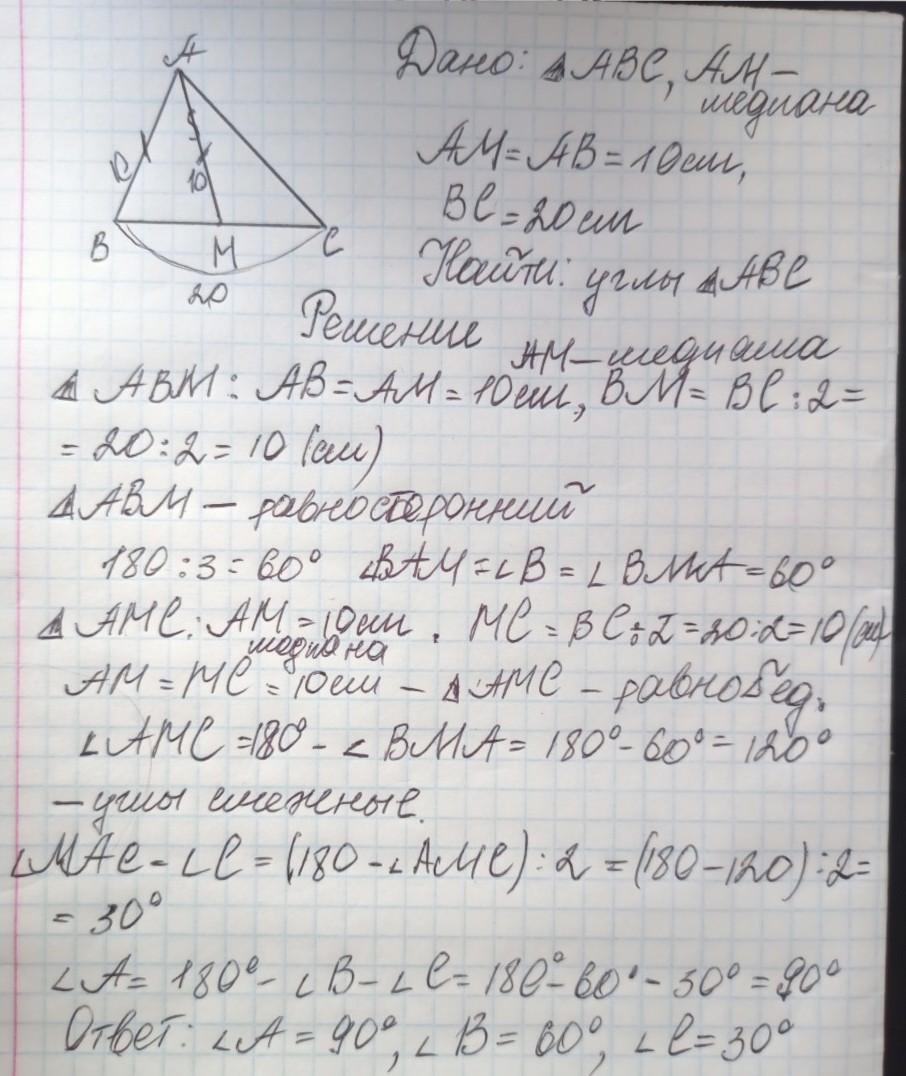 A
Дано: △ABC, AM –
медиана
AM = AB = 10см,
10
10
BC = 20см
B
M
C
20
Найти: углы △ABC
Решение
AM – медиана
△ ABM : AB = AM = 10см, BM = BC : 2 =
= 20 : 2 = 10 (см)
△ABM – равносторонний
180 : 3 = 60° ∠BAM = ∠B = ∠BMA = 60°
△ AMC : AM = 10см. MC = BC : 2 = 20 : 2 = 10 (см)
медиана
AM = MC = 10см – △AMC – равнобед.
∠AMC = 180° - ∠BMA = 180° - 60° = 120°
– углы смежные.
∠MAC = ∠C = (180 - ∠AMC) : 2 = (180 - 120) : 2 =
= 30°
∠A = 180° - ∠B - ∠C = 180° - 60° - 30° = 90°
Ответ: ∠A = 90°, ∠B = 60°, ∠C = 30°